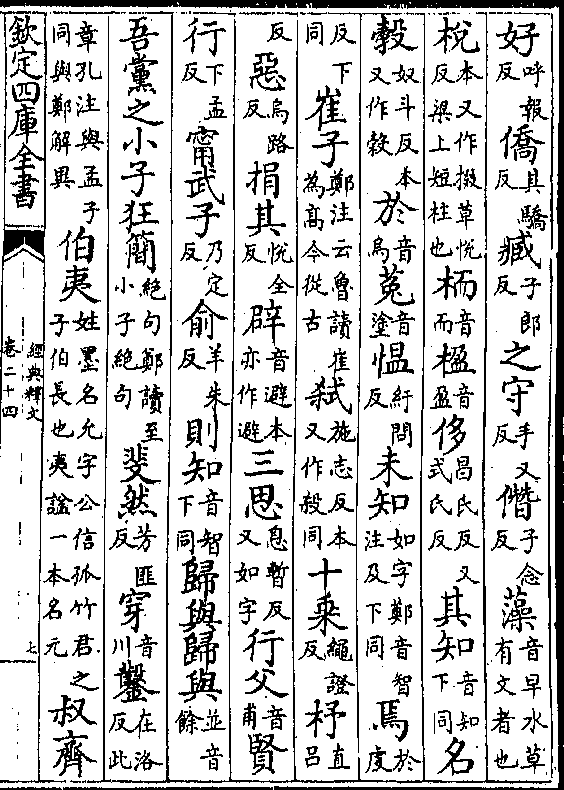 好呼報反僑其驕反臧子郎反之守手又反僭子念反藻音早水草有文者也
梲本又作掇草悦反梁上短柱也栭音而楹音盈侈昌氏反又式氏反其知音知下同名
穀奴斗反本又作㝅於音烏菟音塗愠紆問反未知如字鄭音智注及下同焉於䖍
反下同崔子鄭注云魯讀崔為高今從古弑施志反本又作殺同十乗繩證反杼直吕
反惡烏路反捐其悦全反辟音避本亦作避三思息暫反又如字行父音甫賢
行下孟反甯武子乃定反俞羊朱反則知音智下同歸與歸與並音餘
吾黨之小子狂簡絶句鄭讀至小子絶句斐然芳匪反穿音川鑿在洛反此
章孔注與孟子同與鄭解異伯夷姓墨名允字公信孤竹君之子伯長也夷謚一本名元叔齊
欽定四庫全書
經典釋文
卷二十四
七